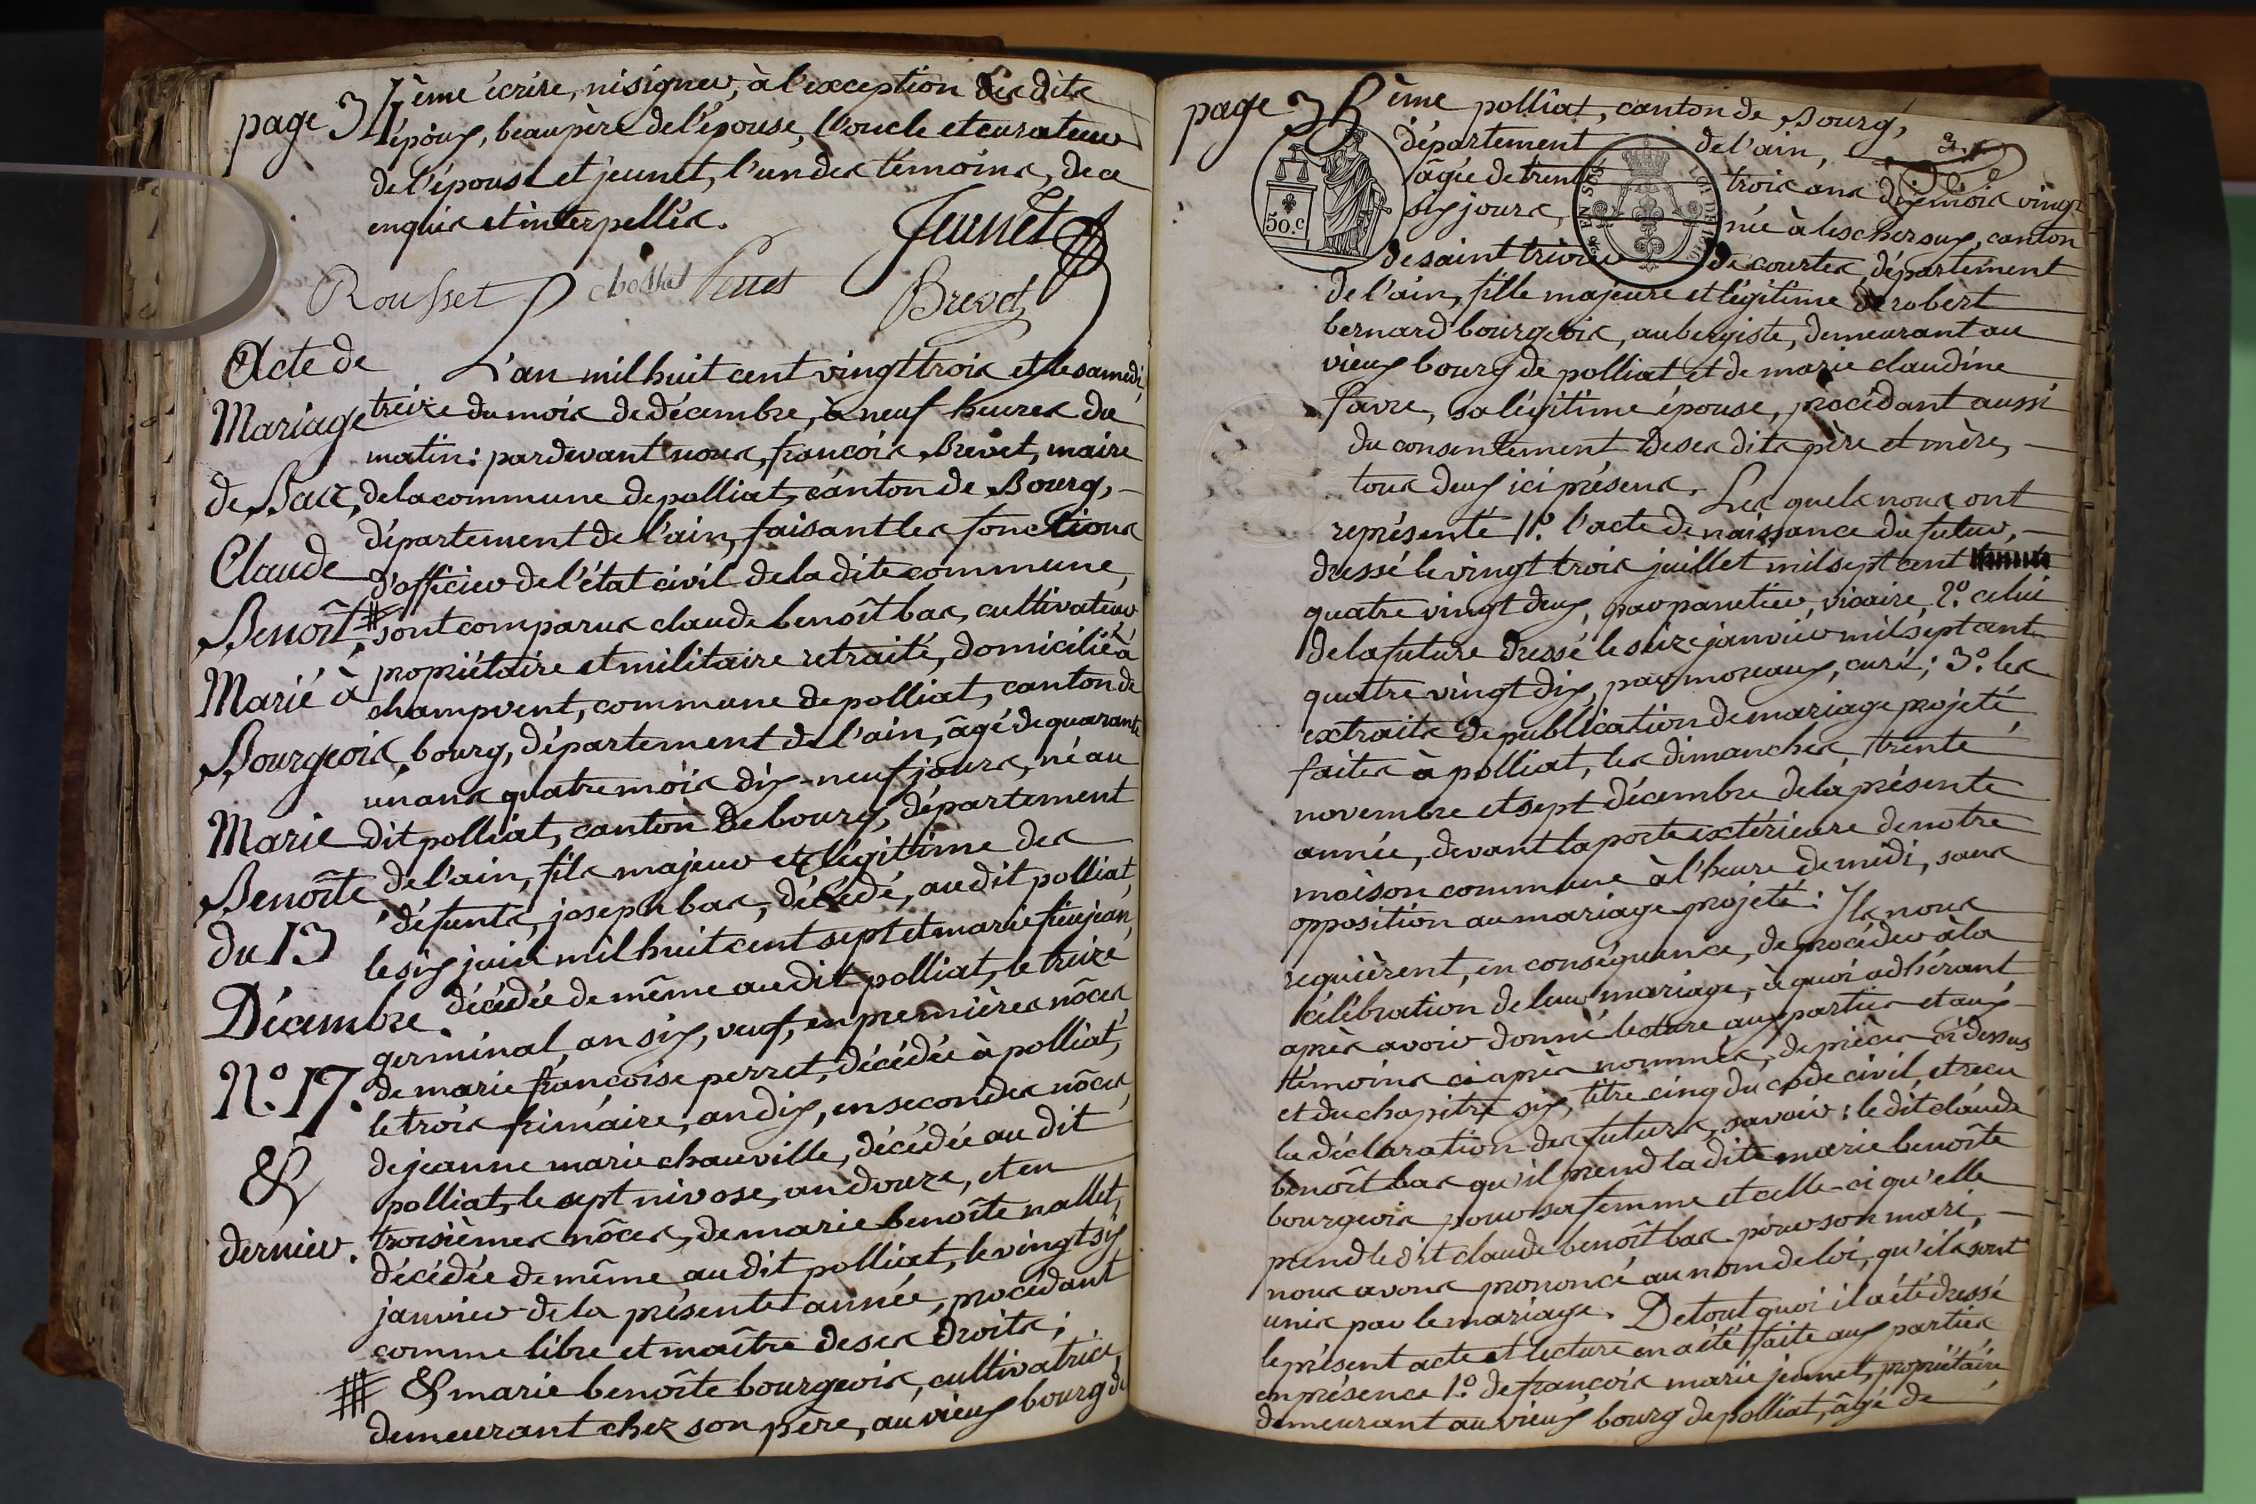 page 34
ème écrire, ni signer, à l'exception des dits
époux, beaupère de l'épouse, l'oncle et curateur
de l'épouse et jeunet, l'un des témoins, de ce
enquis et interpellés.
Jeunet
Rousset
Brevet
Acte de
Mariage
de Bas,
Claude
Benoît
Marié à
Bourgeois,
Marie
Benoîte
du 13
Décembre.
N.º 17.
&
dernier.
L'an mil huit cent vingt trois et le samedi,
treize du mois de décembre, à neuf heures du
matin: pardevant nous, françois Brevet, maire
de la commune de polliat, canton de Bourg,
département de l'ain, faisant les fonctions
d'officier de l'état civil de la dite commune,
sont comparus claude benoît bas, cultivateur
propiétaire et militaire retraité, domicilié à
champvent, commune de polliat, canton de
bourg, département de l'ain, âgé de quarante
un ans quatre mois dix-neuf jours, né au
dit polliat, canton de bourg, département
de l'ain, fils majeur et légitime des
défunts, joseph bas, décédé, au dit polliat,
le six juin mil huit cent sept et marie fieujean,
décédée de même au dit polliat, le treize
germinal, an six, veuf, en premières nôces
de marie françoise perret, décédée à polliat,
le trois frimaire, an dix, en secondes nôces,
de jeanne marie chauville, décédée au dit
polliat, le sept nivose, an douze, et en
troisièmes nôces, de marie benoîte nallet,
décédée de même au dit polliat, le vingt six
janvier de la présente année, procédant
comme libre et maître de ses droits;
& marie benoîte bourgeois, cultivatrice,
demeurant chez son père, au vieux bourg de
page 35
ème polliat, canton de Bourg,
département de l'ain,
âgée de trente trois ans dix mois vingt
six jours, née à lescheroux, canton
de saint trivier de courtes, département
50.c
de l'ain, fille majeure et légitime de robert
bernard bourgeois, aubergiste, demeurant au
vieux bourg de polliat et de marie claudine
favre, sa légitime épouse, procédant aussi
du consentement de ses dits père et mère,
tous deux ici présens. Les quels nous ont
représenté 1º. l'acte de naissance du futur,
dressé le vingt trois juillet mil sept cent
quatre vingt deux, par panetier, vicaire, 2º. celui
de la future dressé le seize janvier mil sept cent
quatre vingt dix, par moreaux, curé; 3º. les
extraits de publication de mariage projeté,
faites à polliat, les dimanches, trente
novembre et sept décembre de la présente
année, devant la porte extérieure de notre
maison commune à l'heure de midi, sans
opposition au mariage projeté: Ils nous
requièrent, en conséquence, de procéder à la
célébration de leur mariage, à quoi adhérant
après avoir donné lecture aux parties et aux
témoins ci après nommés, de pièces ci dessus
et du chapitre six, titre cinq du code civil, et reçu
la déclaration des futurs, savoir: le dit claude
benoît bas qu'il prend la dite marie benoîte
bourgeois pour sa femme et celle-ci qu'elle
prend le dit claude benoît bas pour son mari,
nous avons prononcé au nom de loi, qu'ils sont
unis par le mariage. De tout quoi il a été dressé
le présent acte et lecture en a été faite aux parties
en présence 1º. de françois marie jeunet, propriétaire,
demeurant au vieux bourg de polliat, âgé de